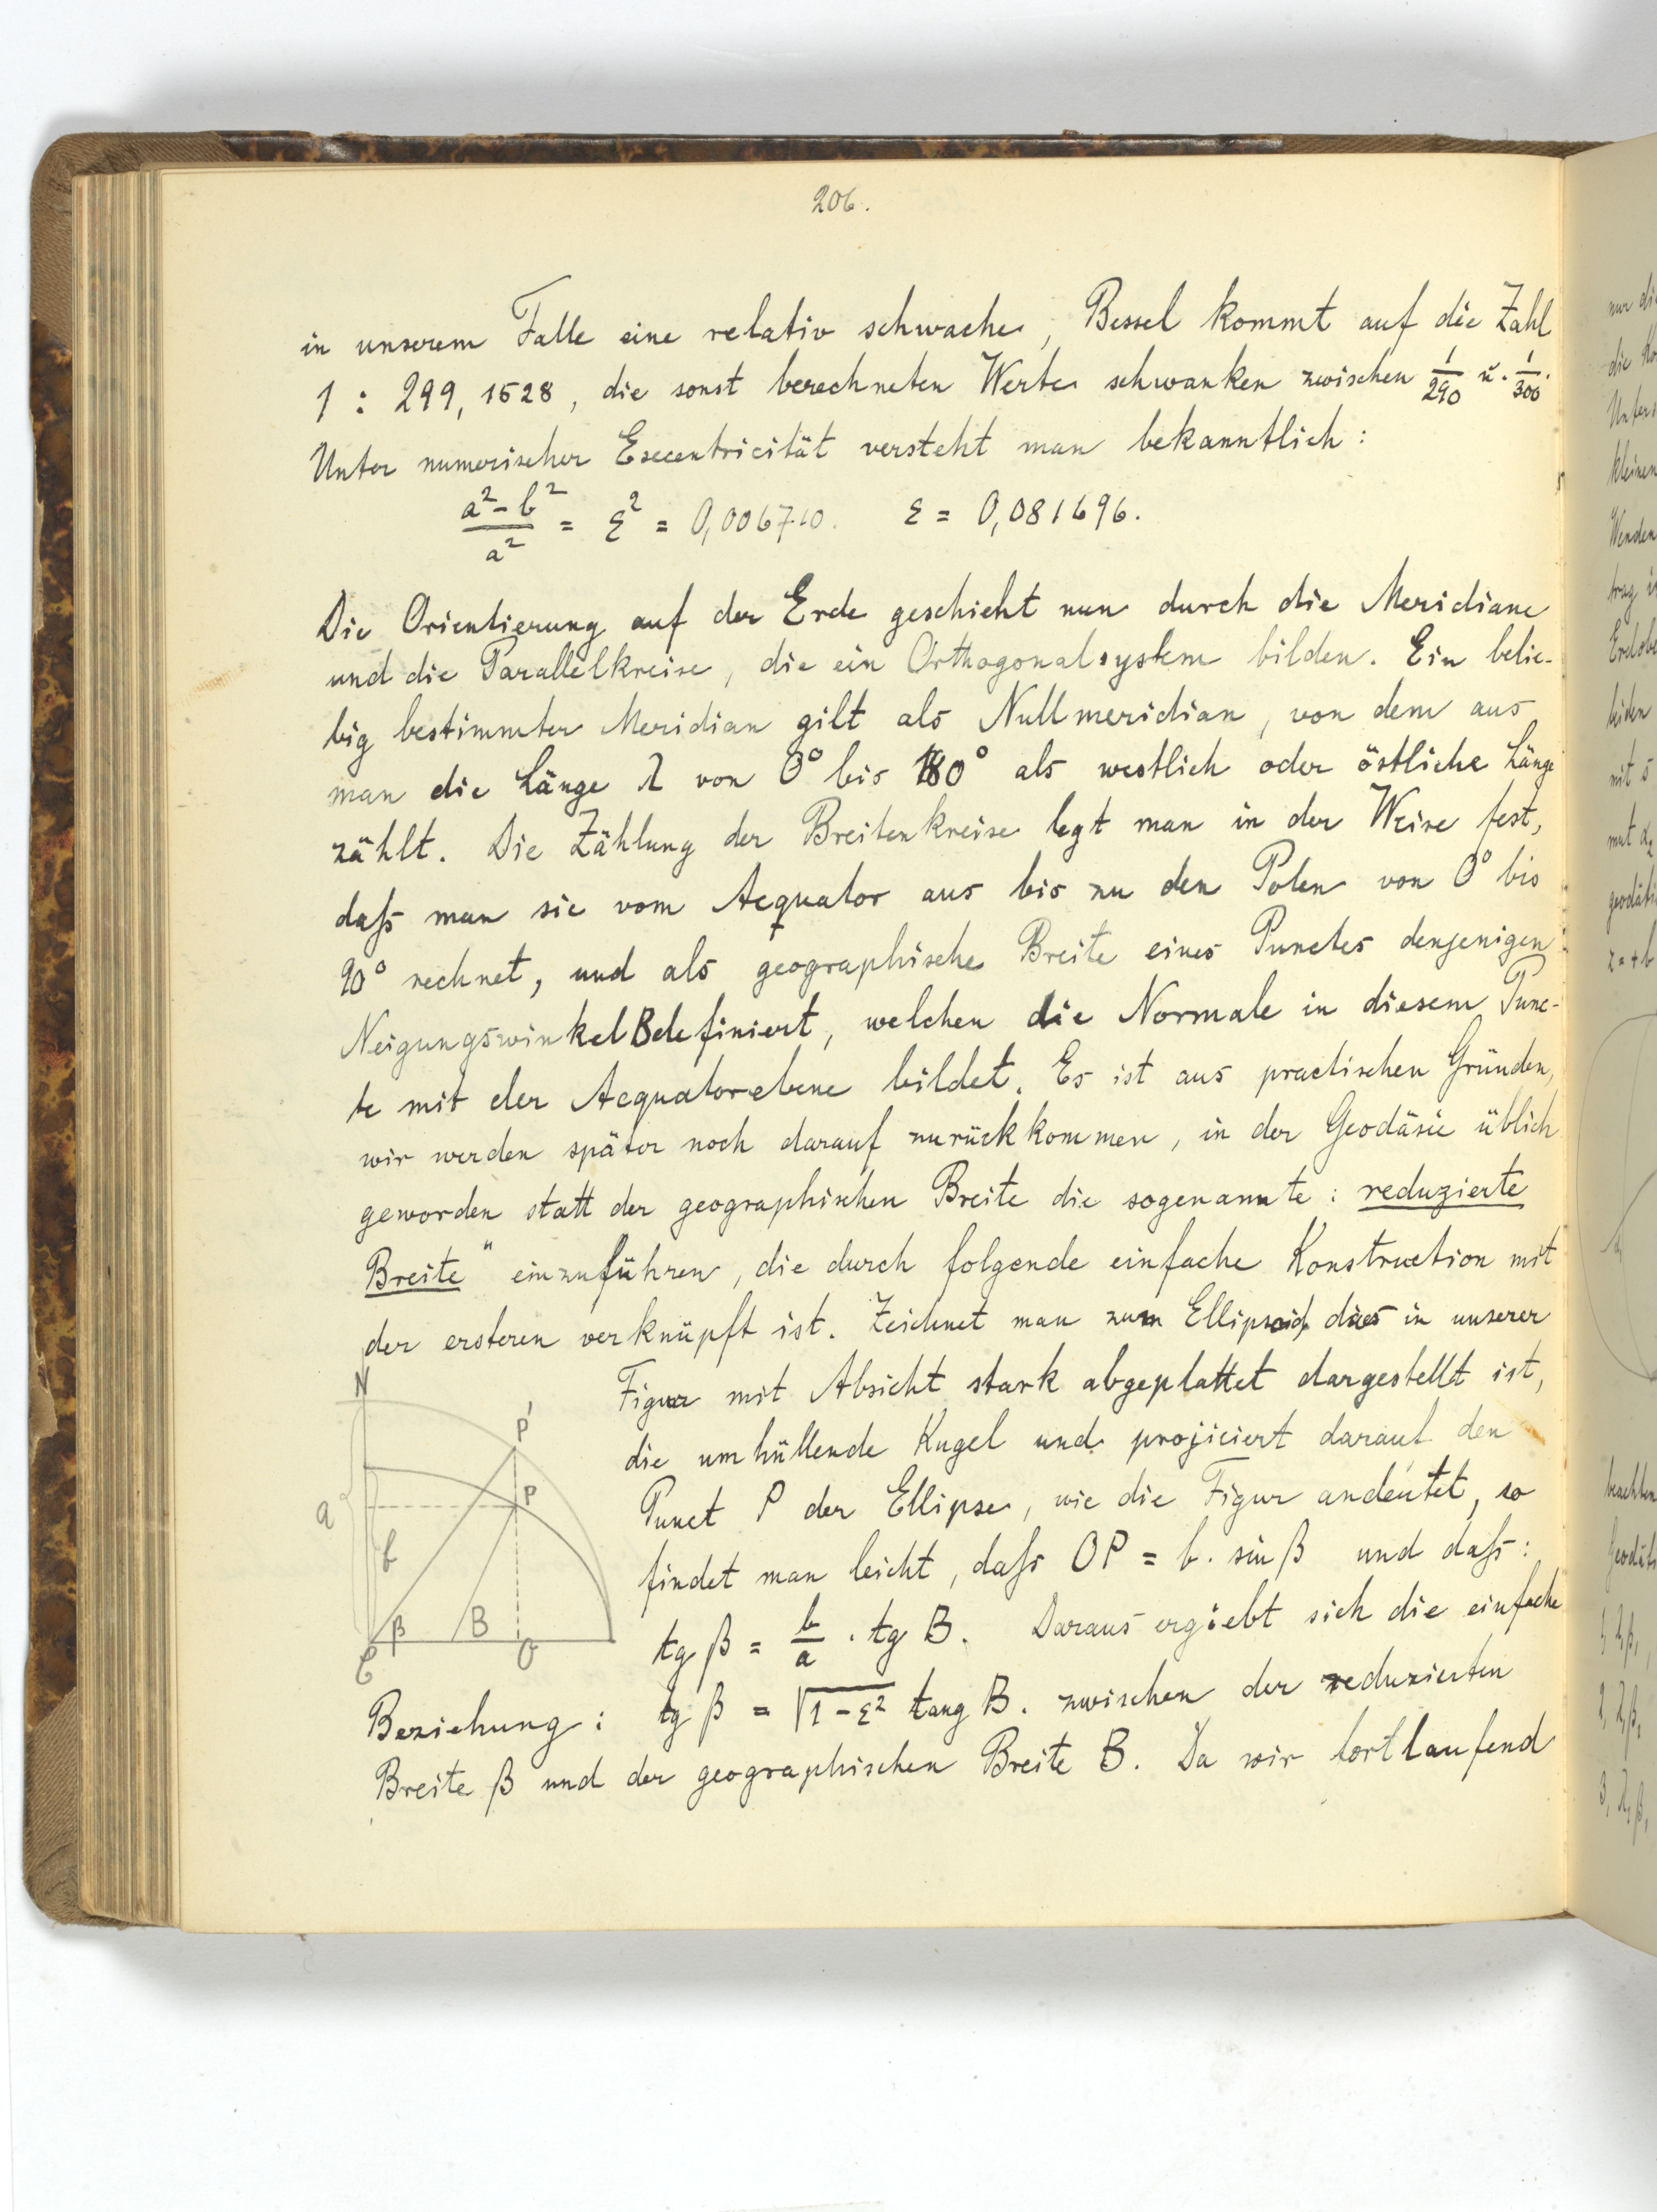 206.
in unserem Falle eine relativ schwache, Bessel kommt auf die Zahl
1 : 299,1528, die sonst berechneten Werte schwanken zwischen 1/290 u. 1/300.
Unter numerischer Excentricität versteht man bekanntlich :
(a² - b²)/a² = ε² = 0,006710. ε = 0,081696.
Die Orientierung auf der Erde geschieht nun durch die Meridiane
und die Parallelkreise, die ein Orthogonalsystem bilden. Ein belie-
big bestimmter Meridian gilt als Nullmeridian, von dem aus
man die Länge λ von 0° bis 180° als westlich oder östliche Länge
zählt. Die Zählung der Breitenkreise legt man in der Weise fest,
daß man sie vom Aequator aus bis zu den Polen von 0° bis
90° rechnet, und als geographische Breite eines Punctes denjenigen
Neigungswinkel B definiert, welchen die Normale in diesem Punc-
te mit der Aequatorebene bildet. Es ist aus practischen Gründen,
wir werden später noch darauf zurückkommen, in der Geodäsie üblich
geworden statt der geographischen Breite die sogenannte : reduzierte
Breite" einzuführen, die durch folgende einfache Konstruction mit
der ersteren verknüpft ist. Zeichnet man zum Ellipsoid, das in unserer
Figur mit Absicht stark abgeplattet dargestellt ist,
die umhüllende Kugel und projiciert darauf den
Punct P der Ellipse, wie die Figur andeutet, so
findet man leicht, daß OP = b. sin β und daß :
tg β = b/a . tg B. Daraus ergiebt sich die einfache
Beziehung : tg β = √(1 - ε²) tang B. zwischen der reduzierten
Breite β und der geographischen Breite B. Da wir fortlaufend
N
P'
P
a
b
β
B
C
O
nur die
kleinen
Wenden
beiden
mit s
z = + b
beachten
1, λ, β,
2, λ, β,
3, λ, β,